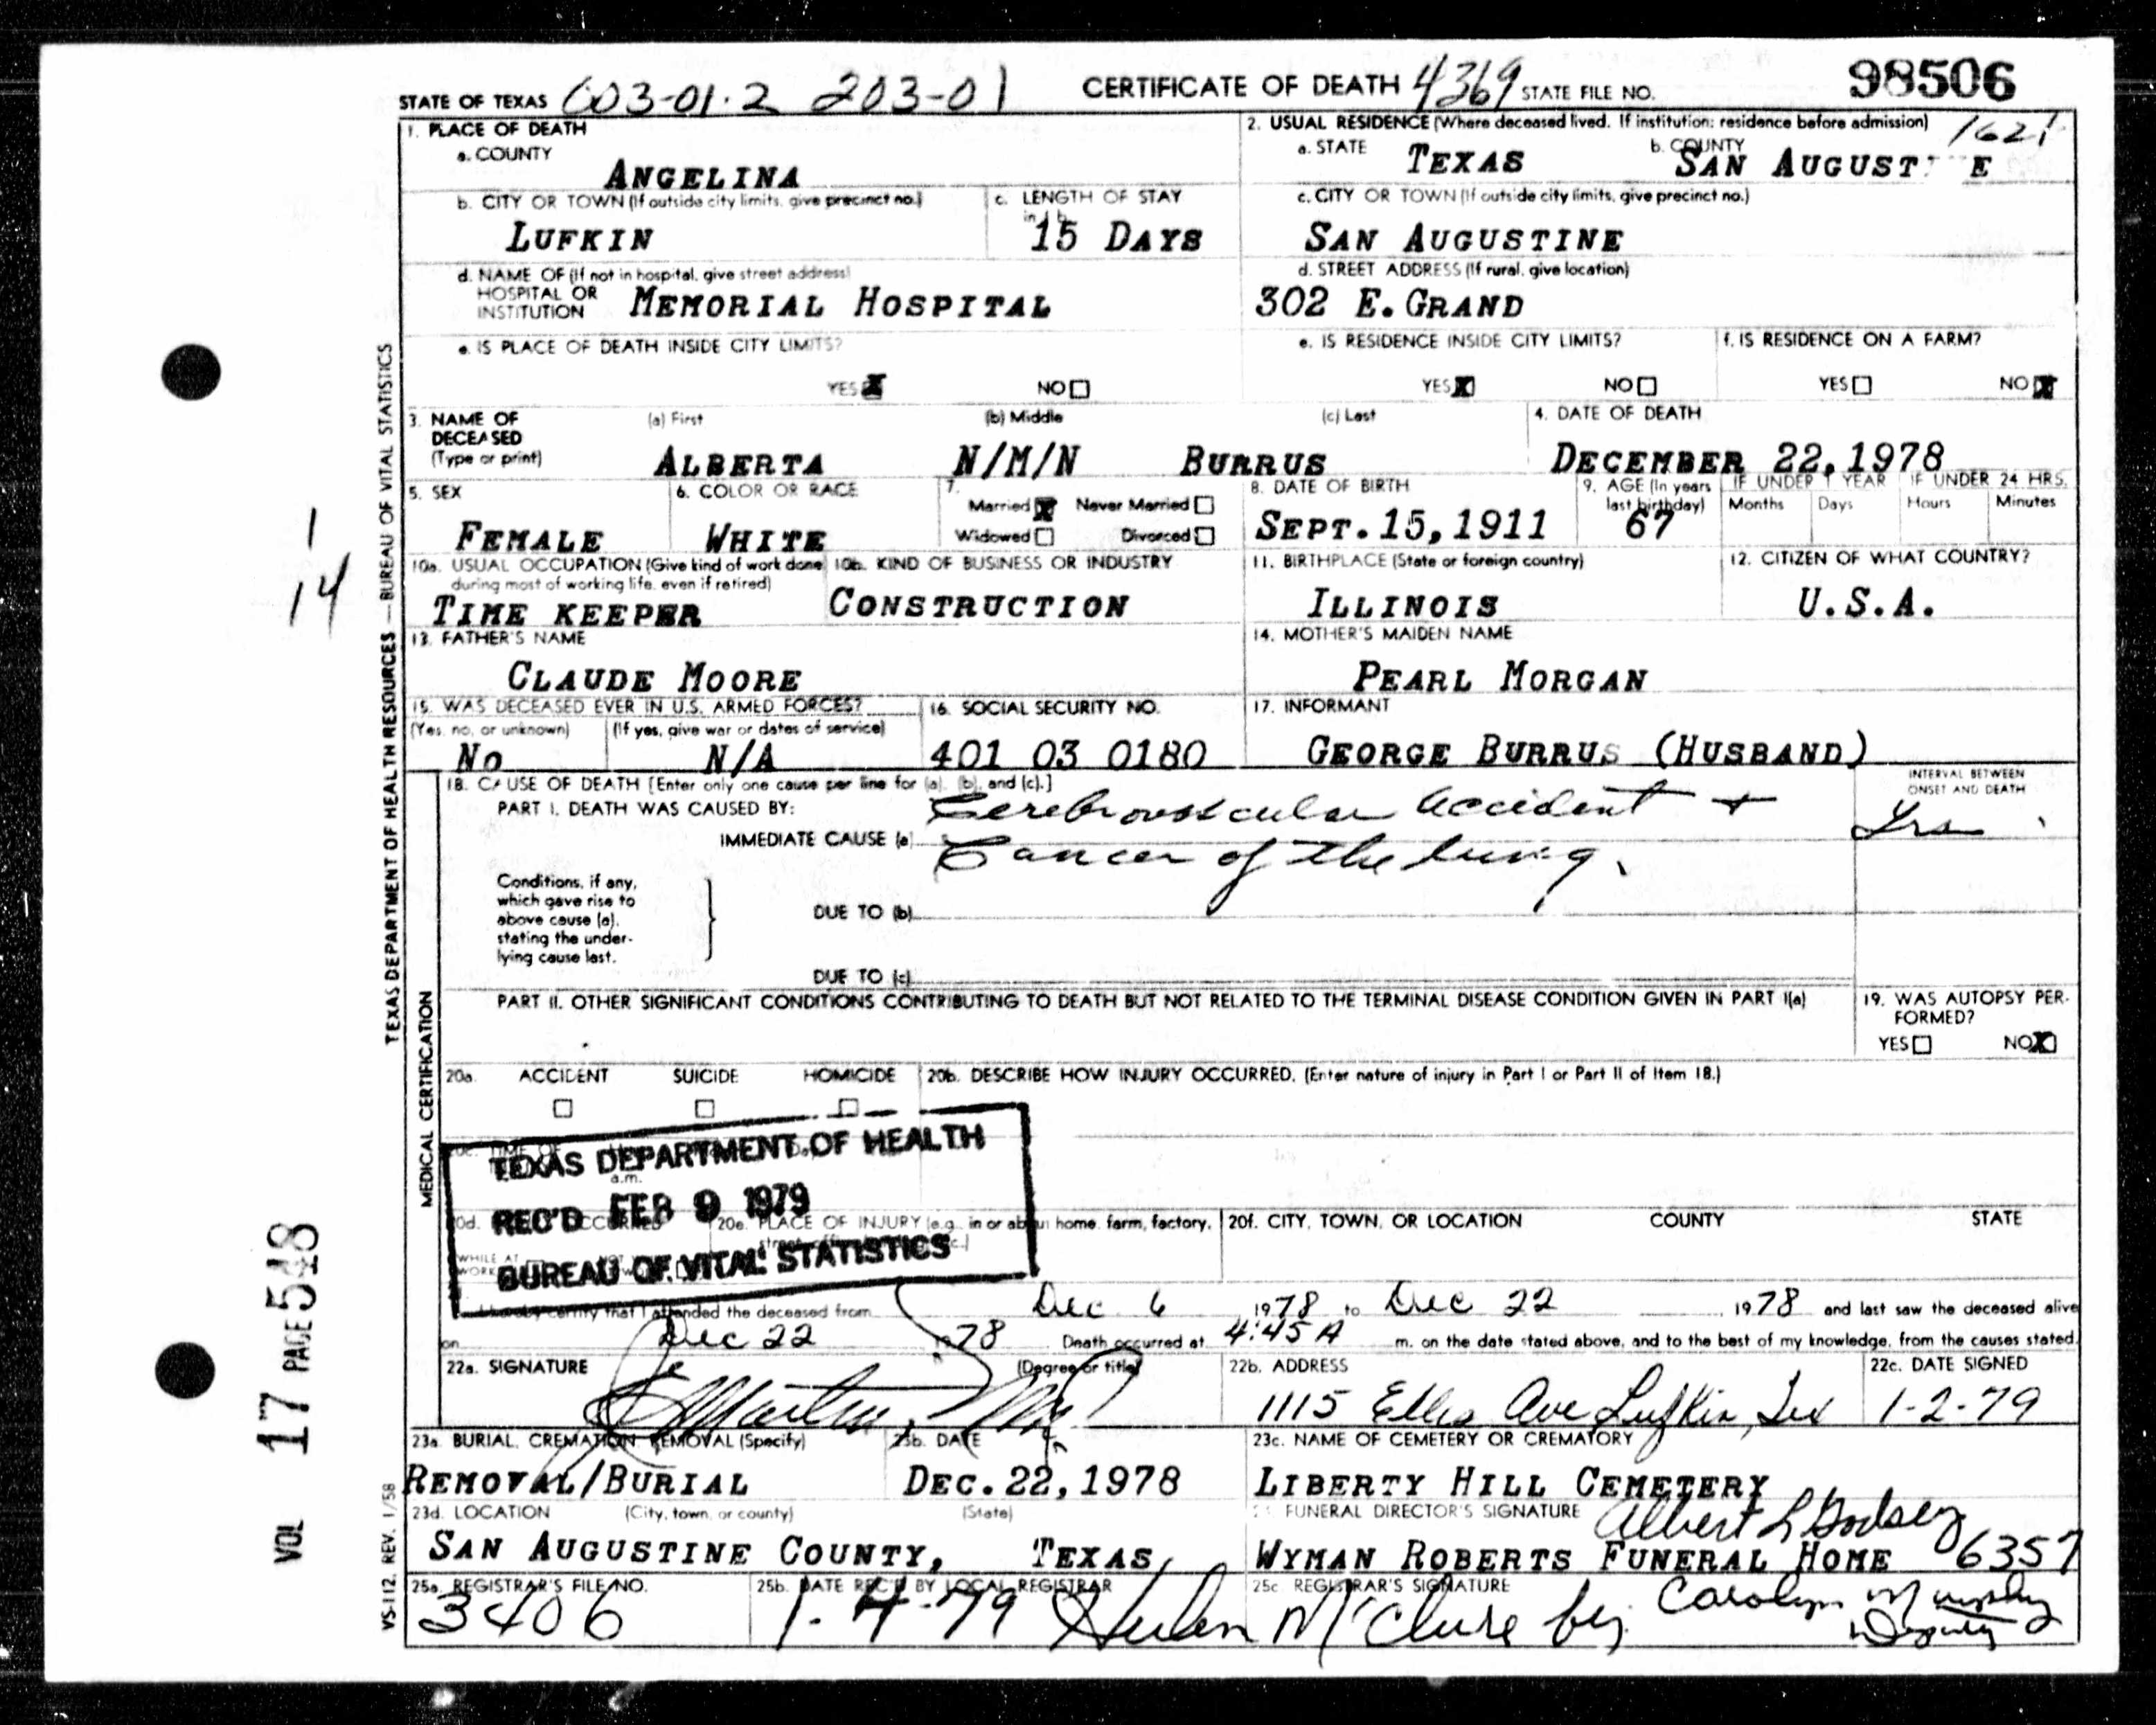 STATE OF TEXAS 003-01.2 203-01 CERTIFICATE OF DEATH 4369 STATE FILE NO. 98506
1. PLACE OF DEATH
a. COUNTY
ANGELINA
2. USUAL RESIDENCE (Where deceased lived. If institution: residence before admission) 1621
a. STATE TEXAS b. COUNTY SAN AUGUST E
b. CITY OR TOWN (If outside city limits, give precinct no.)
LUFKIN
c. LENGTH OF STAY in 1b
15 DAYS
c. CITY OR TOWN (If outside city limits, give precinct no.)
SAN AUGUSTINE
d. NAME OF (If not in hospital, give street address)
HOSPITAL OR
INSTITUTION MEMORIAL HOSPITAL
d. STREET ADDRESS (If rural, give location)
302 E. GRAND
e. IS PLACE OF DEATH INSIDE CITY LIMITS?
YES X NO
e. IS RESIDENCE INSIDE CITY LIMITS?
YES X NO
f. IS RESIDENCE ON A FARM?
YES NO X
3. NAME OF DECEASED (Type or print)
(a) First (b) Middle (c) Last
ALBERTA N/M/N BURRUS
4. DATE OF DEATH
DECEMBER 22, 1978
5. SEX
FEMALE
6. COLOR OR RACE
WHITE
7. Married X Never Married
Widowed Divorced
8. DATE OF BIRTH
SEPT. 15, 1911
9. AGE (In years last birthday)
67
IF UNDER 1 YEAR
Months Days
IF UNDER 24 HRS.
Hours Minutes
10a. USUAL OCCUPATION (Give kind of work done during most of working life, even if retired)
TIME KEEPER
10b. KIND OF BUSINESS OR INDUSTRY
CONSTRUCTION
11. BIRTHPLACE (State or foreign country)
ILLINOIS
12. CITIZEN OF WHAT COUNTRY?
U.S.A.
13. FATHER'S NAME
CLAUDE MOORE
14. MOTHER'S MAIDEN NAME
PEARL MORGAN
15. WAS DECEASED EVER IN U.S. ARMED FORCES?
(Yes, no, or unknown) (If yes, give war or dates of service)
NO N/A
16. SOCIAL SECURITY NO.
401 03 0180
17. INFORMANT
GEORGE BURRUS (HUSBAND)
18. CAUSE OF DEATH [Enter only one cause per line for (a), (b), and (c).]
PART I. DEATH WAS CAUSED BY:
IMMEDIATE CAUSE (a)
Cerebrovascular Accident +
Cancer of the lung.
INTERVAL BETWEEN
ONSET AND DEATH
Yrs
Conditions, if any,
which gave rise to
above cause (a),
stating the under-
lying cause last.
DUE TO (b)
DUE TO (c)
PART II. OTHER SIGNIFICANT CONDITIONS CONTRIBUTING TO DEATH BUT NOT RELATED TO THE TERMINAL DISEASE CONDITION GIVEN IN PART I(a)
19. WAS AUTOPSY PER-
FORMED?
YES NO X
20a. ACCIDENT SUICIDE HOMICIDE
20b. DESCRIBE HOW INJURY OCCURRED. (Enter nature of injury in Part I or Part II of Item 18.)
TEXAS DEPARTMENT OF HEALTH
REC'D FEB 9 1979
BUREAU OF VITAL STATISTICS
a.m.
20d. 20e. PLACE OF INJURY (e.g., in or about home, farm, factory,
20f. CITY, TOWN, OR LOCATION COUNTY STATE
I hereby certify that I attended the deceased from Dec 6 1978 to Dec 22 1978 and last saw the deceased alive
on Dec 22 1978 Death occurred at 4:45 A m. on the date stated above, and to the best of my knowledge, from the causes stated.
22a. SIGNATURE (Degree or title)
22b. ADDRESS
1115 Ellis Ave Lufkin, Tex
22c. DATE SIGNED
1-2-79
23a. BURIAL, CREMATION, REMOVAL (Specify)
REMOVAL/BURIAL
23b. DATE
DEC. 22, 1978
23c. NAME OF CEMETERY OR CREMATORY
LIBERTY HILL CEMETERY
23d. LOCATION (City, town, or county) (State)
SAN AUGUSTINE COUNTY, TEXAS
FUNERAL DIRECTOR'S SIGNATURE Albert L Godsey
WYMAN ROBERTS FUNERAL HOME 6357
25a. REGISTRAR'S FILE NO.
3406
25b. DATE REC'D BY LOCAL REGISTRAR
1-4-79
25c. REGISTRAR'S SIGNATURE
Helen McClure by Carolyn Murphy
Deputy
MEDICAL CERTIFICATION
TEXAS DEPARTMENT OF HEALTH RESOURCES — BUREAU OF VITAL STATISTICS
VS-112, REV. 1/58
1
14
VOL 17 PAGE 548